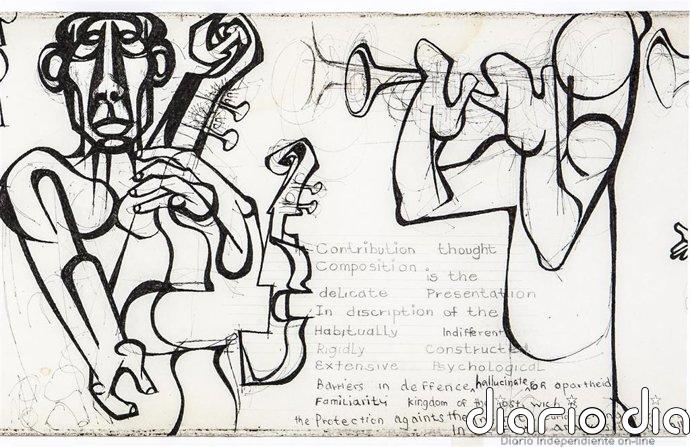 Contribution thought
Composition
is the
delicate Presentation
In discription of the
Habitually Indifferent
Rigidly Constructed
Extensive Psychological
Barriers in deffence, hallucinate, FOR apartheid
Familiarity kingdom of the lost wich
the Protection againts the
In
diario dia
Diario Independiente on-line